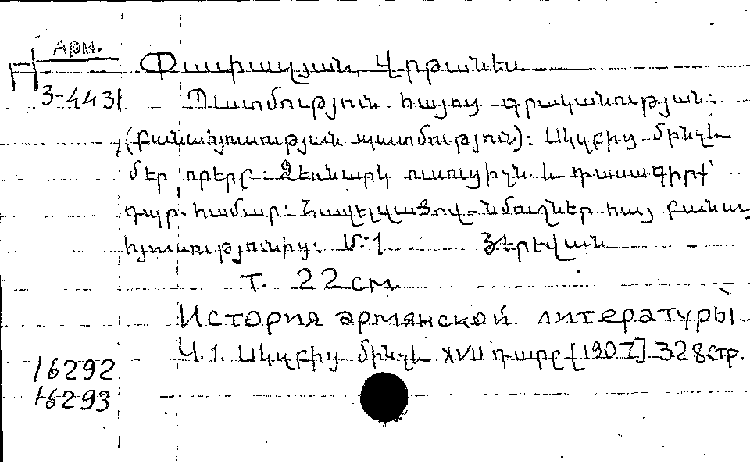 Арм.
П
3-4431
Փափազյան, Վրթանես
Պատմություն հայոց գրականության:
(բանահյուսության պատմություն): Սկզբից մինչև
մեր օրերը: Ձեռնարկ ուսուցիչն և դասագիրք
դպր. համար: Հավելվածով նմուշներ հայ բանա-
հյուսությունից. Մ. 1 Յերեվան
Т. 22 см
История армянской литературы
Ч. 1. Սկզբից մինչև XVII դարը [1907] 328 стр.
16292
16293